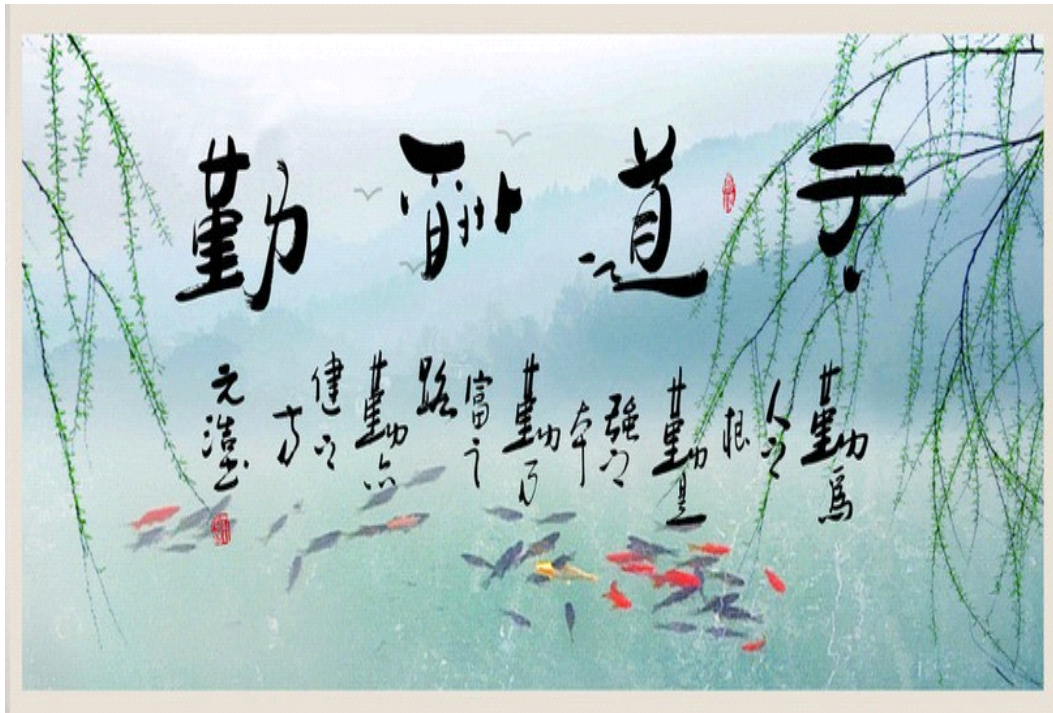 天道酬勤
勤為
人之
根
勤是
強之
本
勤乃
富之
路
勤亦
健之
方
元浩書